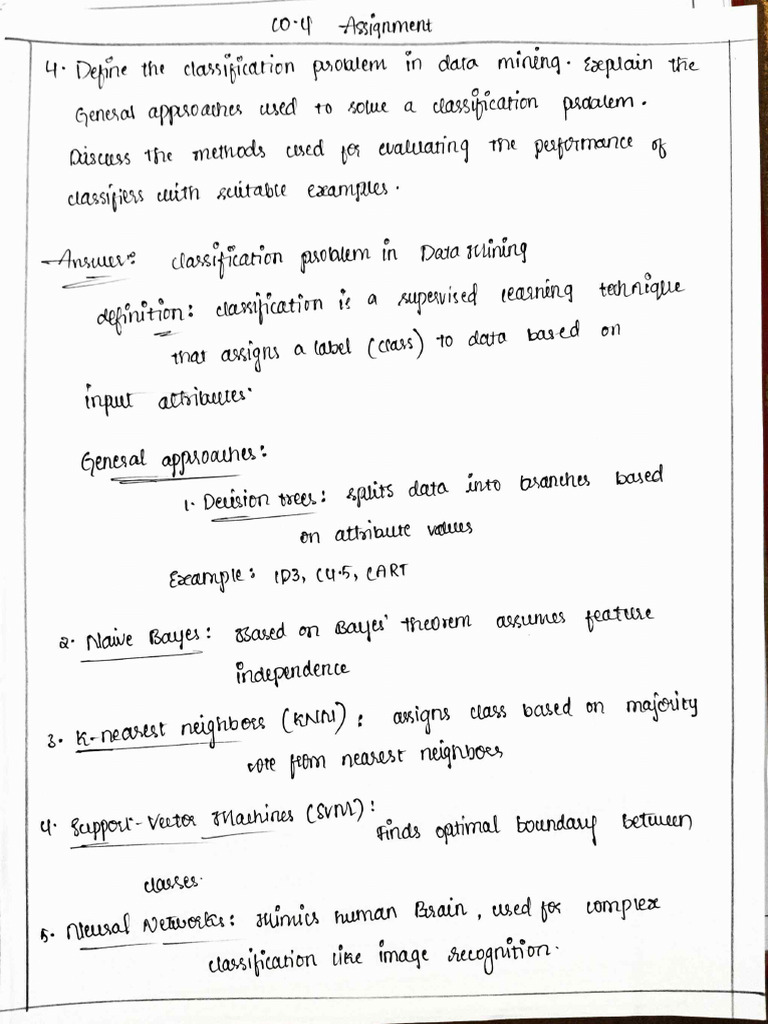 CO-4 Assignment
4. Define the classification problem in data mining. Explain the
General approaches used to solve a classification problem.
Discuss the methods used for evaluating the performance of
classifiers with suitable examples.
Answer: classification problem in Data Mining
definition: classification is a supervised learning technique
that assigns a label (class) to data based on
input attributes.
General approaches:
1. Decision trees: splits data into branches based
on attribute values
Example: ID3, C4.5, CART
2. Naive Bayes: Based on Bayes' theorem assumes feature
independence
3. K-nearest neighbors (KNN): assigns class based on majority
vote from nearest neighbors
4. Support-Vector Machines (SVM):
Finds optimal boundary between
classes.
5. Neural Networks: Mimics human Brain, used for complex
classification like image recognition.